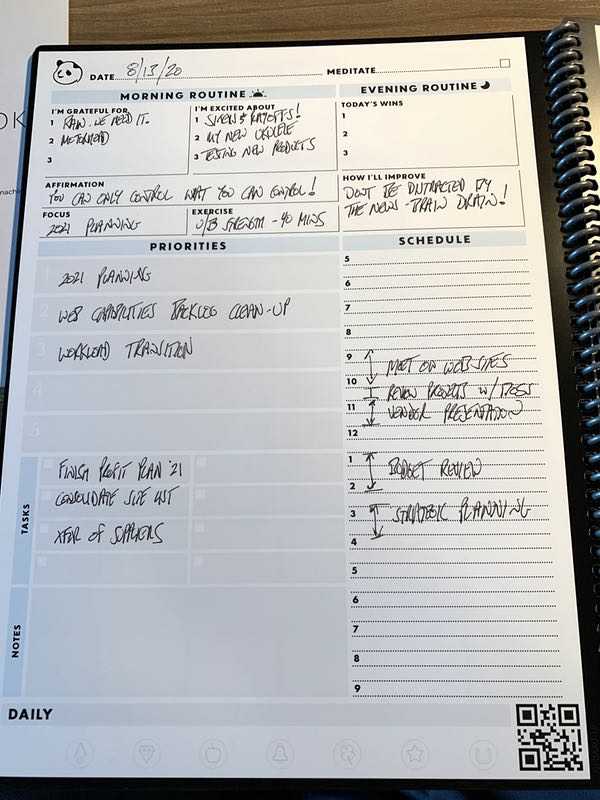 OK
machin
DATE 8/13/20
MEDITATE
MORNING ROUTINE
EVENING ROUTINE
I'M GRATEFUL FOR
1 RAIN. WE NEED IT.
2
3
I'M EXCITED ABOUT
1 & PLAYOFFS!
2 MY NEW UKULELE
3 TESTING NEW PRODUCTS
TODAY'S WINS
1
2
3
AFFIRMATION
YOU CAN ONLY CONTROL WHAT YOU CAN CONTROL!
HOW I'LL IMPROVE
DON'T BE DISTRACTED BY
THE NEWS - BRAIN DRAIN!
FOCUS
2021 PLANNING
EXERCISE
U/B STRENGTH - 40 MINS
PRIORITIES
1 2021 PLANNING
2 WEB CAPABILITIES BACKLOG CLEAN-UP
3 WORKLOAD TRANSITION
4
5
SCHEDULE
5
6
7
8
9
MEET ON WEBSITES
10
REVIEW PROJECTS W/
11
VENDOR PRESENTATION
12
1
BUDGET REVIEW
2
3
STRATEGIC PLANNING
4
5
6
7
8
9
TASKS
FINISH PROFIT PLAN '21
CONSOLIDATE SITE LIST
XFER OF SUPPLIERS
NOTES
DAILY